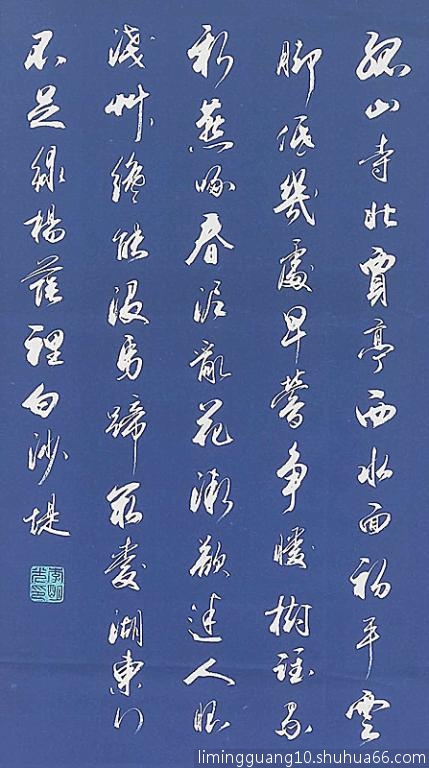 孤山寺北賈亭西水面初平雲
脚低幾處早鶯争暖樹誰家
新燕啄春泥亂花漸欲迷人眼
淺艸纔能没馬蹄最愛湖東行
不足綠楊蔭裡白沙堤
limingguang10.shuhua66.com